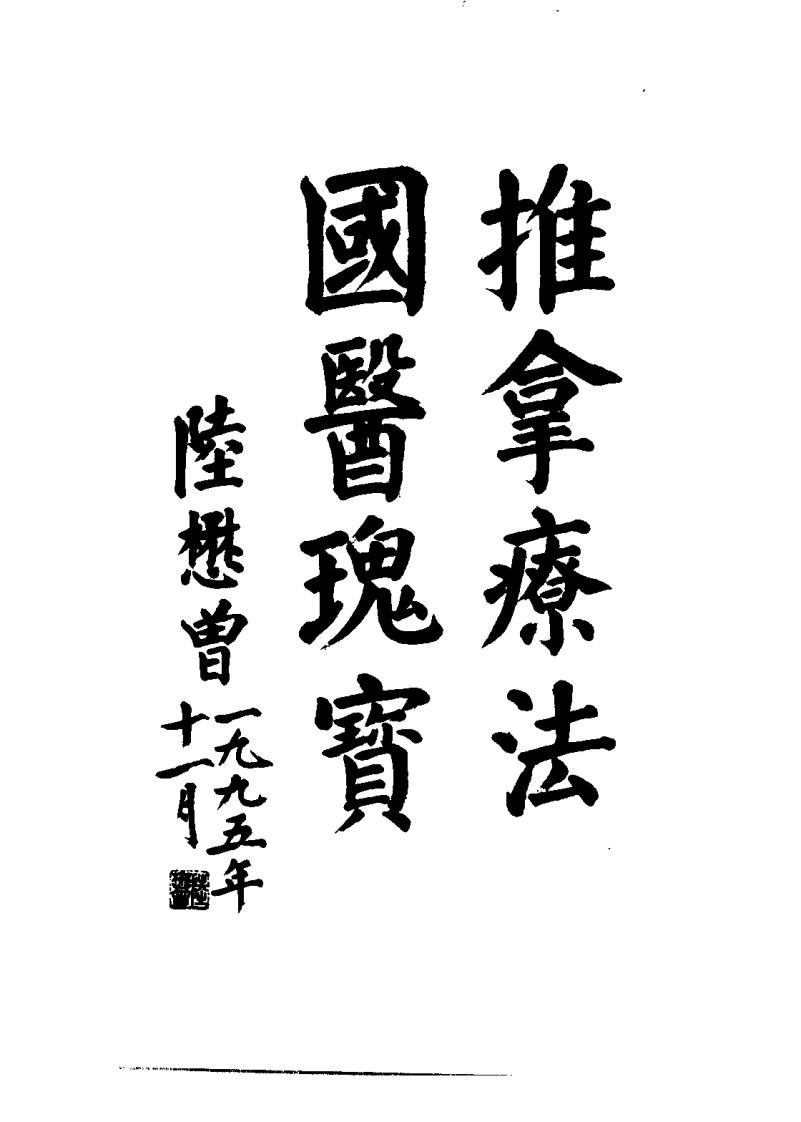 推拿療法
國醫瑰寶
陸懋曾
一九九五年
十一月